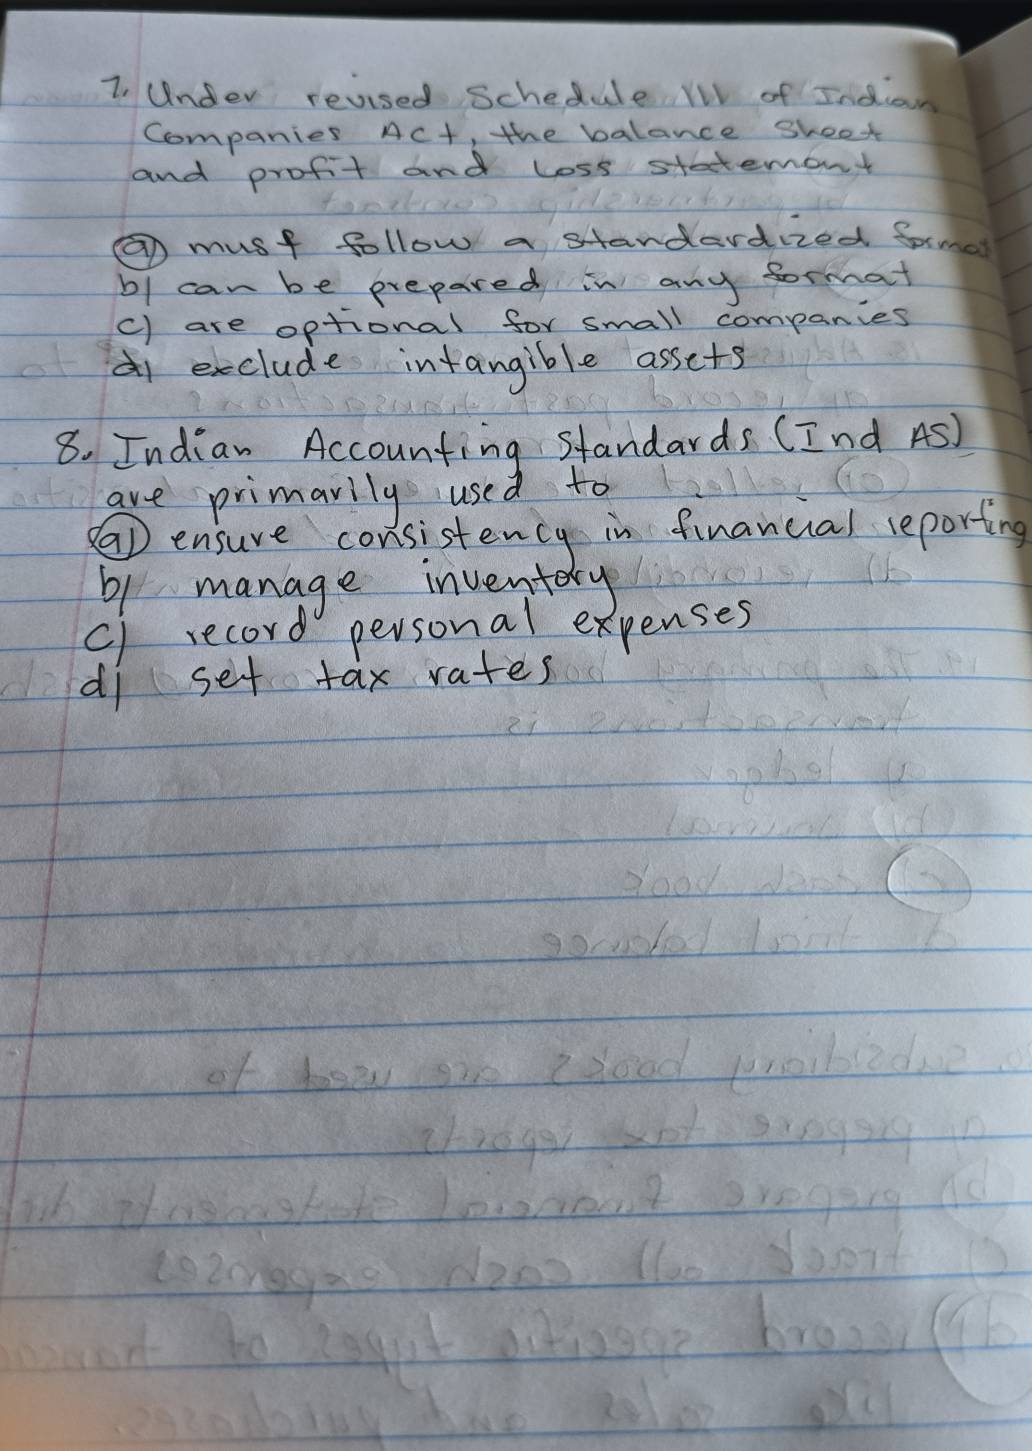 7. Under revised Schedule III of Indian
Companies Act, the balance sheet
and profit and loss statement
a) must follow a standardized format
b) can be prepared in any format
c) are optional for small companies
d) exclude intangible assets
8. Indian Accounting Standards (Ind AS)
are primarily used to
a) ensure consistency in financial reporting
b) manage inventory
c) record personal expenses
d) set tax rates